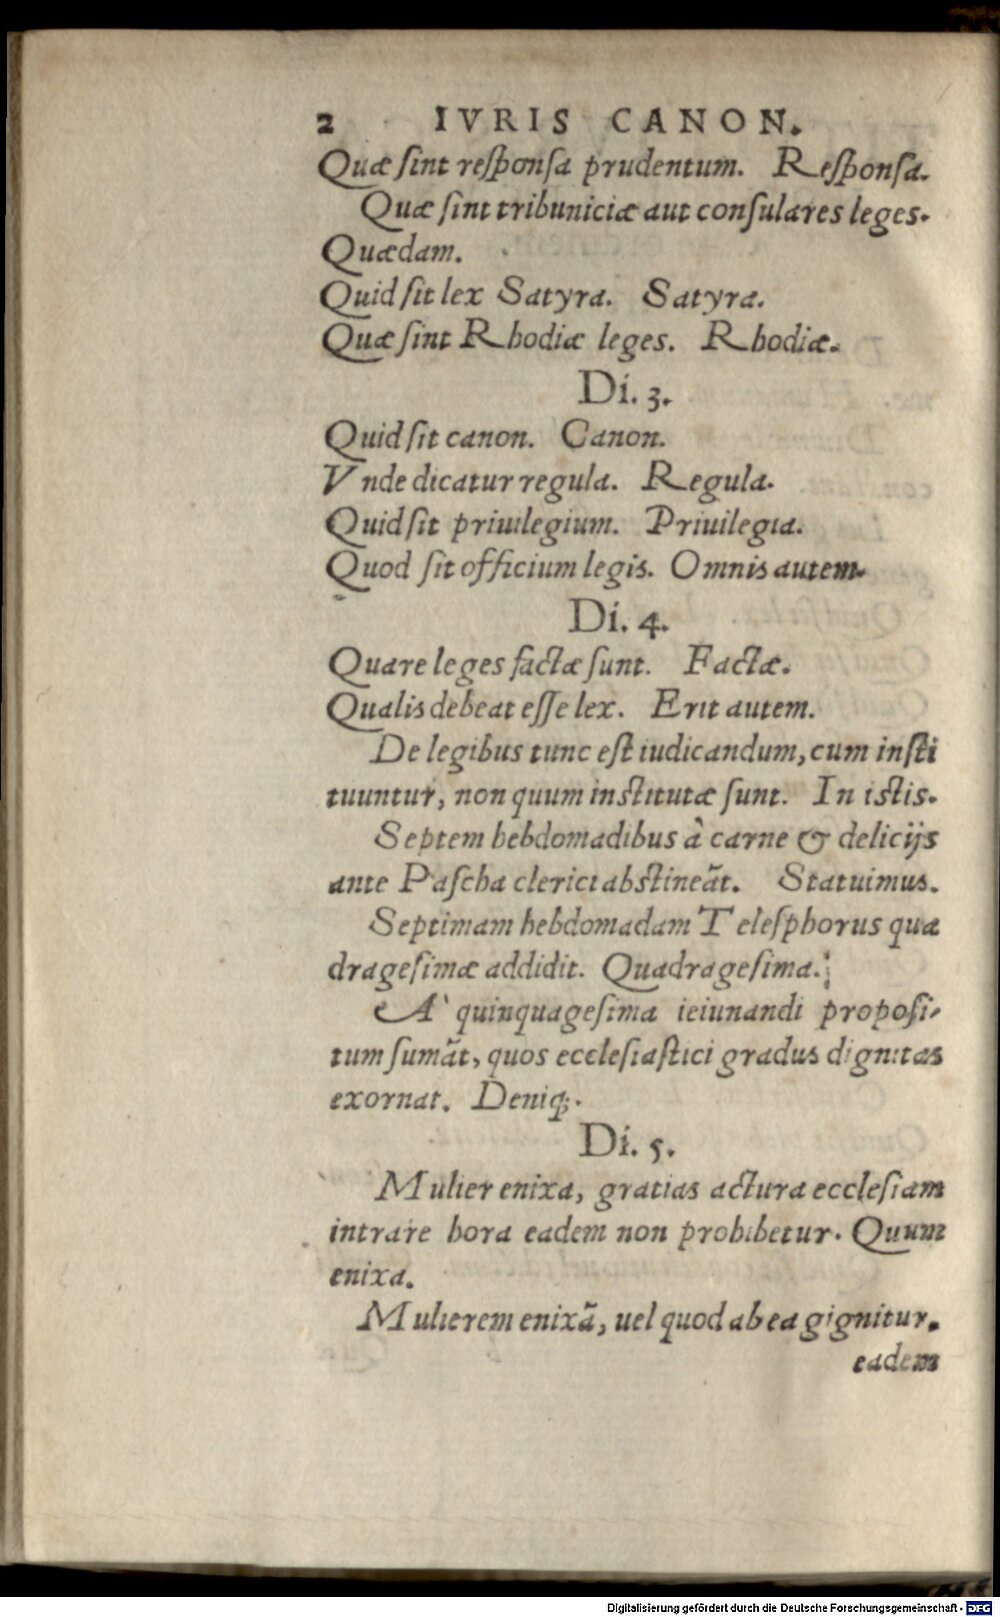 2 IVRIS CANON.
Quæ sint responsa prudentum. Responsa.
Quæ sint tribuniciæ aut consulares leges.
Quædam.
Quid sit lex Satyra. Satyra.
Quæ sint Rhodiæ leges. Rhodiæ.
Di. 3.
Quid sit canon. Canon.
Vnde dicatur regula. Regula.
Quid sit priuilegium. Priuilegia.
Quod sit officium legis. Omnis autem.
Di. 4.
Quare leges factæ sunt. Factæ.
Qualis debeat esse lex. Erit autem.
De legibus tunc est iudicandum, cum insti
tuuntur, non quum institutæ sunt. In istis.
Septem hebdomadibus à carne & delicijs
ante Pascha clerici abstineãt. Statuimus.
Septimam hebdomadam Telesphorus qua
dragesimæ addidit. Quadragesima.
A' quinquagesima ieiunandi proposi-
tum sumãt, quos ecclesiastici gradus dignitas
exornat. Deniq;.
Di. 5.
Mulier enixa, gratias actura ecclesiam
intrare hora eadem non prohibetur. Quum
enixa.
Mulierem enixã, uel quod ab ea gignitur.
eadem
Digitalisierung gefördert durch die Deutsche Forschungsgemeinschaft - DFG